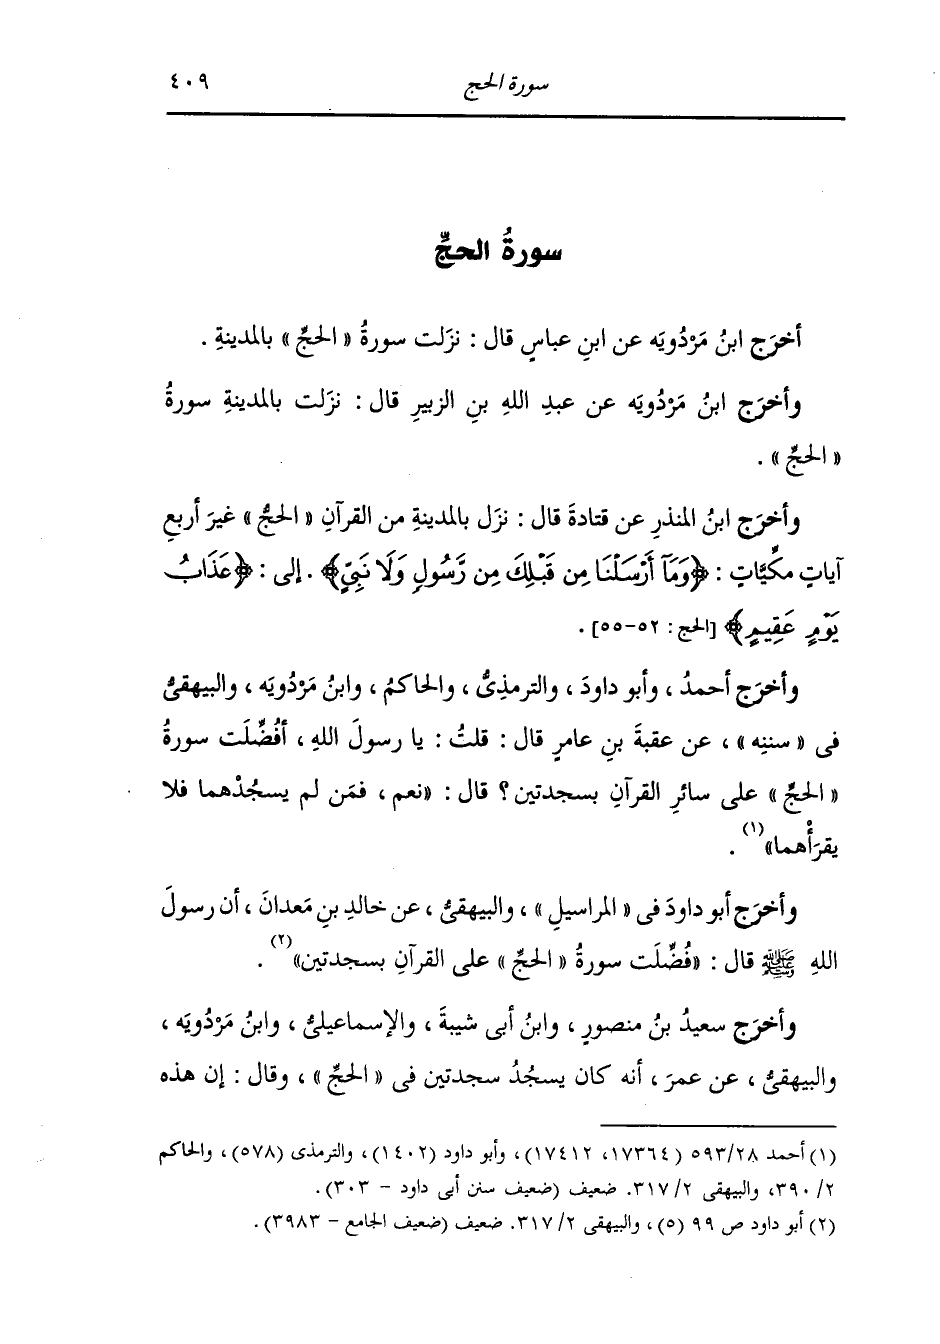 سورة الحج ٤٠٩
سورةُ الحجِّ
أخرَج ابنُ مَرْدُويَه عن ابنِ عباسٍ قال : نزَلت سورةُ « الحجِّ » بالمدينةِ .
وأخرَج ابنُ مَرْدُويَه عن عبدِ اللهِ بنِ الزبيرِ قال : نزَلت بالمدينةِ سورةُ
« الحجِّ » .
وأخرَج ابنُ المنذرِ عن قتادةَ قال : نزَل بالمدينةِ من القرآنِ « الحجُّ » غيرَ أربعِ
آياتٍ مكِّيَّاتٍ : ﴿وَمَآ أَرْسَلْنَا مِن قَبْلِكَ مِن رَّسُولٍ وَلَا نَبِيٍّ﴾ . إلى : ﴿عَذَابُ
يَوْمٍ عَقِيمٍ﴾ [الحج : ٥٢-٥٥] .
وأخرَج أحمدُ ، وأبو داودَ ، والترمذىُّ ، والحاكمُ ، وابنُ مَرْدُويَه ، والبيهقىُّ
فى « سننِه » ، عن عقبةَ بنِ عامرٍ قال : قلتُ : يا رسولَ اللهِ ، أفُضِّلَت سورةُ
« الحجِّ » على سائرِ القرآنِ بسجدتين ؟ قال : «نعم ، فمَن لم يسجُدْهما فلا
يقرَأْهما»(١) .
وأخرَج أبو داودَ فى « المراسيلِ » ، والبيهقىُّ ، عن خالدِ بنِ مَعدانَ ، أن رسولَ
اللهِ ﷺ قال : «فُضِّلَت سورةُ « الحجِّ » على القرآنِ بسجدتين»(٢) .
وأخرَج سعيدُ بنُ منصورٍ ، وابنُ أبى شيبةَ ، والإسماعيلىُّ ، وابنُ مَرْدُويَه ،
والبيهقىُّ ، عن عمرَ ، أنه كان يسجُدُ سجدتين فى « الحجِّ » ، وقال : إن هذه
(١) أحمد ٥٩٣/٢٨ (١٧٣٦٤، ١٧٤١٢)، وأبو داود (١٤٠٢)، والترمذى (٥٧٨)، والحاكم
٣٩٠/٢، والبيهقى ٣١٧/٢. ضعيف (ضعيف سنن أبى داود - ٣٠٣).
(٢) أبو داود ص ٩٩ (٥)، والبيهقى ٣١٧/٢. ضعيف (ضعيف الجامع - ٣٩٨٣).